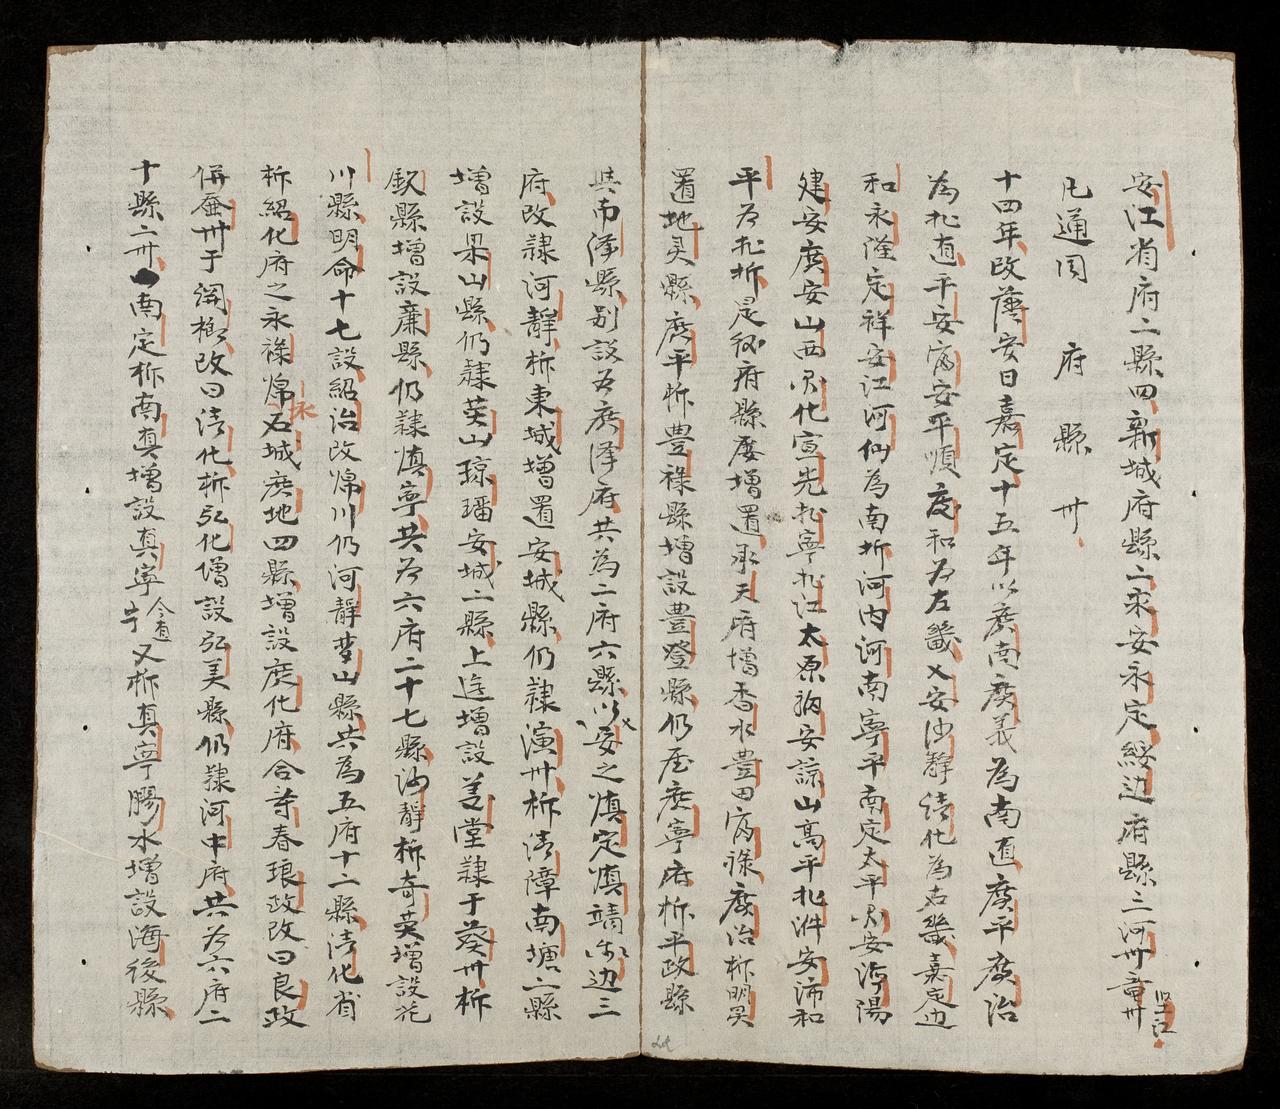 安江省府二縣四新城府縣二永安永定綏边府縣三河卅竜卅堅江
凡通国 府 縣 卅
十四年改藩安曰嘉定十五年以廣南廣義為南直廣平廣治
為北直平安富安平順慶和为左畿乂安河静清化為右畿嘉定边
和永隆定祥安江河仙為南圻河内河南寧平南定太平海陽
建安廣安山西興化宣光北寧北江太原諒山高平北件安沛和
平为北圻是後府縣屡增置承天府增香水豊田富祿廣治析明灵
置地灵縣廣平析豊祿縣增設豊登縣仍属廣寧府析平政縣
其南泽縣别設为廣泽府共為二府六縣乂安之慎定慎靖边三
府改隸河靜析東城增置安城縣仍隸演卅析清漳南塘二縣
增設梁山縣仍隸英山琼璠安城二縣上造增設美堂隸于葵卅析
欽縣增設廉縣仍隸慎寧共为六府二十七縣河靜析奇英增設花
川縣明命十七設紹治改綿川仍河靜梦山縣共為五府十二縣清化省
析紹化府之永祿綿永石城廣地四縣增設廣化府合寺春琅政改曰良政
併蚕卅于関化改曰清化析弘化增設弘美縣仍隸河中府共为六府二
十縣二卅南定析南真增設真寧今直宁又析真寧膠水增設海後縣